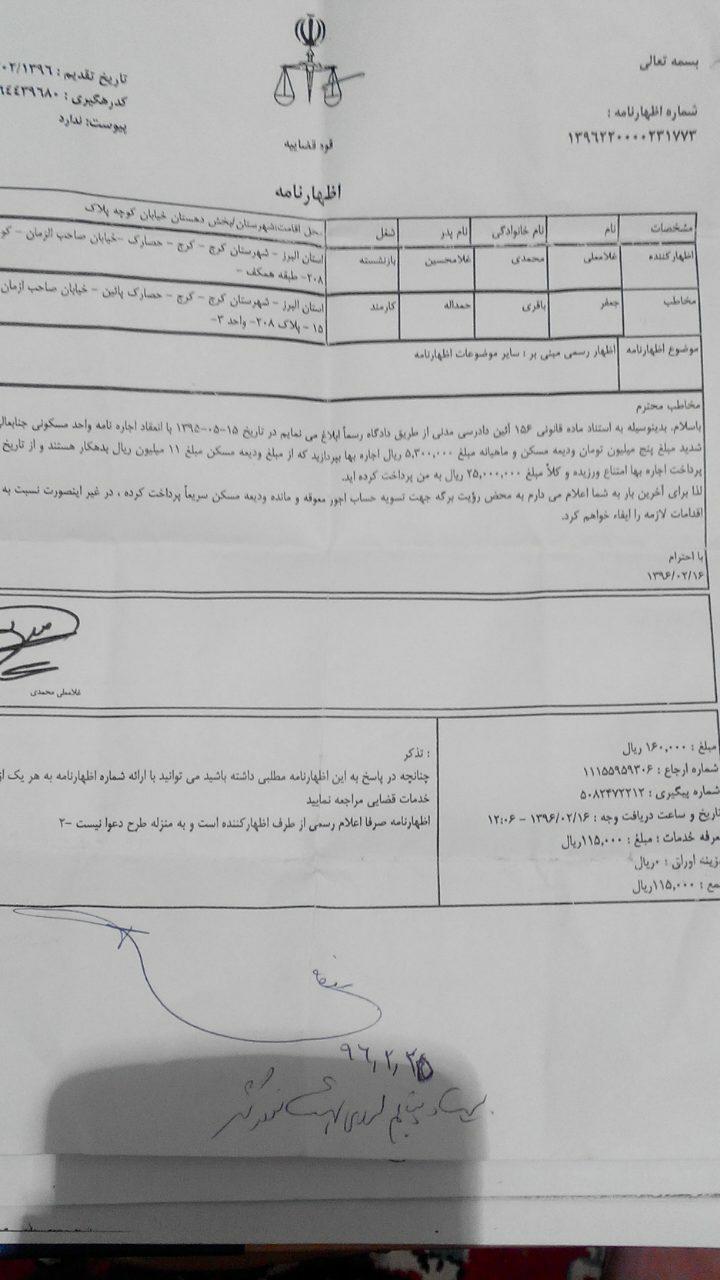 بسمه تعالی
شماره اظهارنامه :
۱۳۹۶۲۲۰۰۰۰۲۳۱۷۷۳
قوه قضاییه
تاریخ تقدیم : ۰۲/۱۳۹۶
کدرهگیری : ۶۴۴۳۹۶۸۰
پیوست: ندارد
اظهارنامه
مشخصات نام نام خانوادگی نام پدر شغل محل اقامت:شهرستان/بخش دهستان خیابان کوچه پلاک
اظهارکننده غلامعلی محمدی غلامحسین بازنشسته استان البرز - شهرستان کرج - کرج - حصارک -خیابان صاحب الزمان -
۲۰۸- طبقه همکف -
مخاطب جعفر باقری حمداله کارمند استان البرز - شهرستان کرج - کرج - حصارک پائین - خیابان صاحب ازمان
۱۵ - پلاک ۲۰۸- واحد ۳-
موضوع اظهارنامه اظهار رسمی مبنی بر : سایر موضوعات اظهارنامه
مخاطب محترم
باسلام. بدینوسیله به استناد ماده قانونی ۱۵۶ آئین دادرسی مدنی از طریق دادگاه رسماً ابلاغ می نمایم در تاریخ ۱۵-۰۵-۱۳۹۵ با انعقاد اجاره نامه واحد مسکونی
شدید مبلغ پنج میلیون تومان ودیعه مسکن و ماهیانه مبلغ ۵,۳۰۰,۰۰۰ ریال اجاره بها بپردازید که از مبلغ ودیعه مسکن مبلغ ۱۱ میلیون ریال بدهکار هستند و از تاریخ
پرداخت اجاره بها امتناع ورزیده و کلاً مبلغ ۲۵,۰۰۰,۰۰۰ ریال به من پرداخت کرده اید.
لذا برای آخرین بار به شما اعلام می دارم به محض رؤیت برگه جهت تسویه حساب اجور معوقه و مانده ودیعه مسکن سریعاً پرداخت کرده ، در غیر اینصورت نسبت به
اقدامات لازمه را ایفاء خواهم کرد.
با احترام
۱۳۹۶/۰۲/۱۶
غلامعلی محمدی
مبلغ : ۱۶۰,۰۰۰ ریال
شماره ارجاع : ۱۱۱۵۵۹۵۹۳۰۶
شماره پیگیری : ۵۰۸۲۴۷۲۲۱۲
تاریخ و ساعت دریافت وجه : ۱۳۹۶/۰۲/۱۶ - ۱۲:۰۶
خدمات : مبلغ : ۱۱۵,۰۰۰ریال
اوراق : ۰ریال
۱۱۵,۰۰۰ریال
تذکر :
چنانچه در پاسخ به این اظهارنامه مطلبی داشته باشید می توانید با ارائه شماره اظهارنامه به هر یک از
خدمات قضایی مراجعه نمایید
اظهارنامه صرفا اعلام رسمی از طرف اظهارکننده است و به منزله طرح دعوا نیست -۲